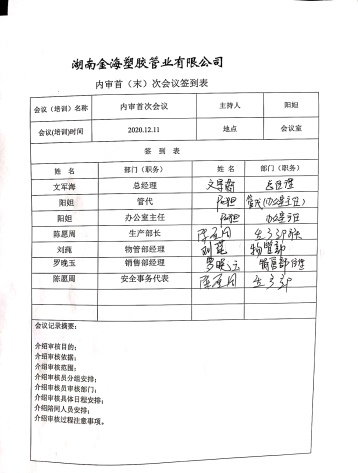 湖南金海塑胶管业有限公司
内审首（末）次会议签到表
会议（培训）名称 内审首次会议 主持人 阳姐
会议(培训)时间 2020.12.11 地点 会议室
签 到 表
姓 名 部门（职务） 姓 名 部门（职务）
文军海 总经理 文军海 总经理
阳姐 管代 阳姐 管代(办公室主任)
阳姐 办公室主任 阳姐 办公室主任
陈愿周 生产部长 陈愿周 生产部长
刘莼 物管部经理 刘莼 物管部
罗晚玉 销售部经理 罗晚玉 销售部经理
陈愿周 安全事务代表 陈愿周 生产部
会议记录摘要：
介绍审核目的：
介绍审核依据：
介绍审核范围：
介绍审核员分组安排：
介绍审核员审核部门：
介绍审核具体日程安排：
介绍陪同人员安排：
介绍审核过程注意事项。